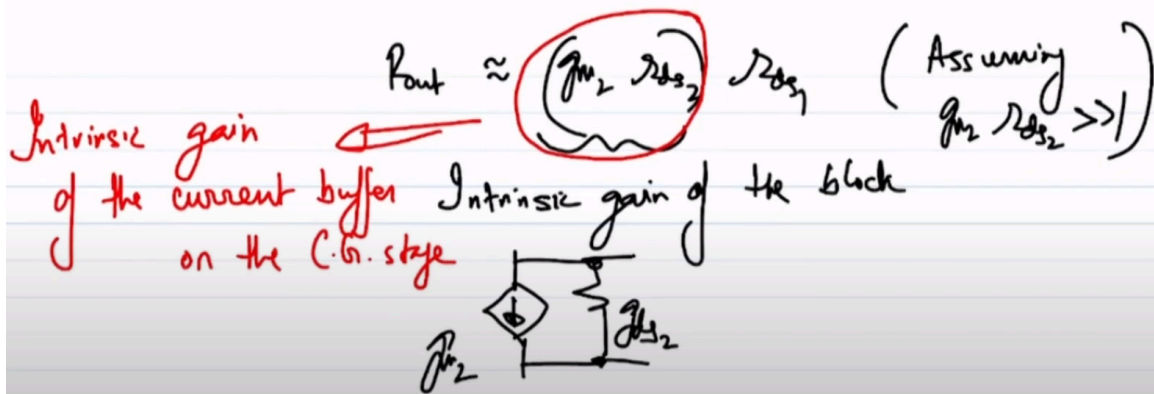 Rout ≈ (gm2 rds2) rds1 (Assuming
gm2 rds2 >>1)
Intrinsic gain
of the current buffer
on the C.G. stage
Intrinsic gain of the block
gm2
gds2